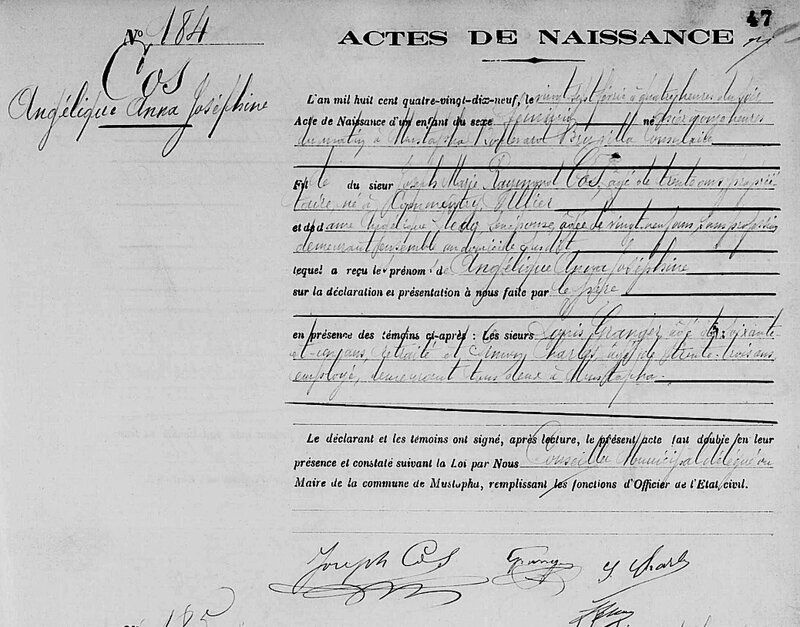 47
Nº 184
ACTES DE NAISSANCE
Cos
Angélique Anna Joséphine
L'an mil huit cent quatre-vingt-dix-neuf, le vingt sept février à quatre heures du soir
Acte de Naissance d'un enfant du sexe féminin né à onze heures
du matin à Mustapha Boulevard Consulaire
Fille du sieur Joseph Marie Raymond Cos, âgé de trente ans, proprié-
taire, né à Commentry, Allier
et de dame Angélique son épouse âgée de vingt neuf ans, sans profession
demeurant ensemble au domicile susdit
lequel a reçu le prénom de Angélique Anna Joséphine
sur la déclaration et présentation à nous faite par le père
en présence des témoins ci-après : Les sieurs Louis Granger, âgé de soixante
et un ans, retraité et Charles, âgé de trente-trois ans
employé, demeurant tous deux à Mustapha
Le déclarant et les témoins ont signé, après lecture, le présent acte fait double en leur
présence et constaté suivant la Loi par Nous Conseiller Municipal délégué du
Maire de la commune de Mustapha, remplissant les fonctions d'Officier de l'Etat civil.
Joseph Cos Granger Charles
185